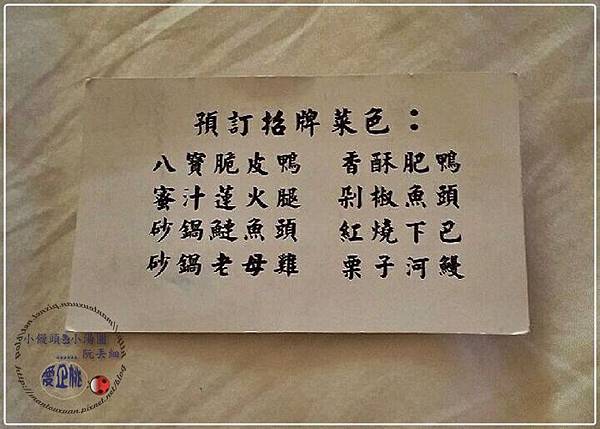 預訂招牌菜色：
八寶脆皮鴨 香酥肥鴨
蜜汁蓮火腿 剁椒魚頭
砂鍋鰱魚頭 紅燒下巴
砂鍋老母雞 栗子河鰻
小饅頭&小湯圓
阮丢細
愛企桃
http://mantouxuan.pixnet.net/blog